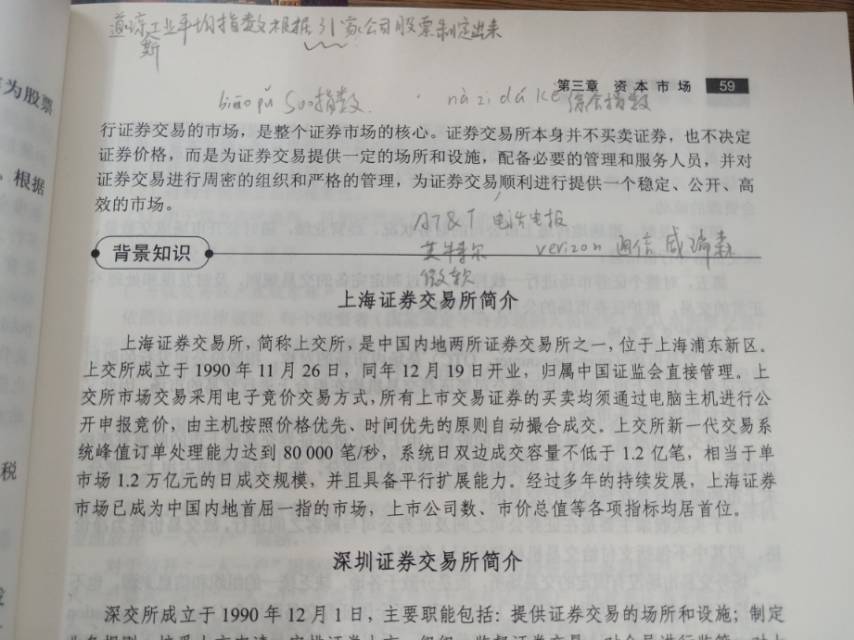 道琼工业平均指数根据31家公司股票制定出来
斯
第三章 资本市场 59
biāo pǔ suo指数 nà zī dá kè 综合指数
为股票
行证券交易的市场，是整个证券市场的核心。证券交易所本身并不买卖证券，也不决定
证券价格，而是为证券交易提供一定的场所和设施，配备必要的管理和服务人员，并对
根据
证券交易进行周密的组织和严格的管理，为证券交易顺利进行提供一个稳定、公开、高
效的市场。
AT&T 电话电报
背景知识
英特尔 verizon 通信 威瑞森
微软
上海证券交易所简介
上海证券交易所，简称上交所，是中国内地两所证券交易所之一，位于上海浦东新区。
上交所成立于 1990 年 11 月 26 日，同年 12 月 19 日开业，归属中国证监会直接管理。上
交所市场交易采用电子竞价交易方式，所有上市交易证券的买卖均须通过电脑主机进行公
开申报竞价，由主机按照价格优先、时间优先的原则自动撮合成交。上交所新一代交易系
统峰值订单处理能力达到 80 000 笔/秒，系统日双边成交容量不低于 1.2 亿笔，相当于单
税
市场 1.2 万亿元的日成交规模，并且具备平行扩展能力。经过多年的持续发展，上海证券
市场已成为中国内地首屈一指的市场，上市公司数、市价总值等各项指标均居首位。
深圳证券交易所简介
深交所成立于 1990 年 12 月 1 日，主要职能包括：提供证券交易的场所和设施；制定